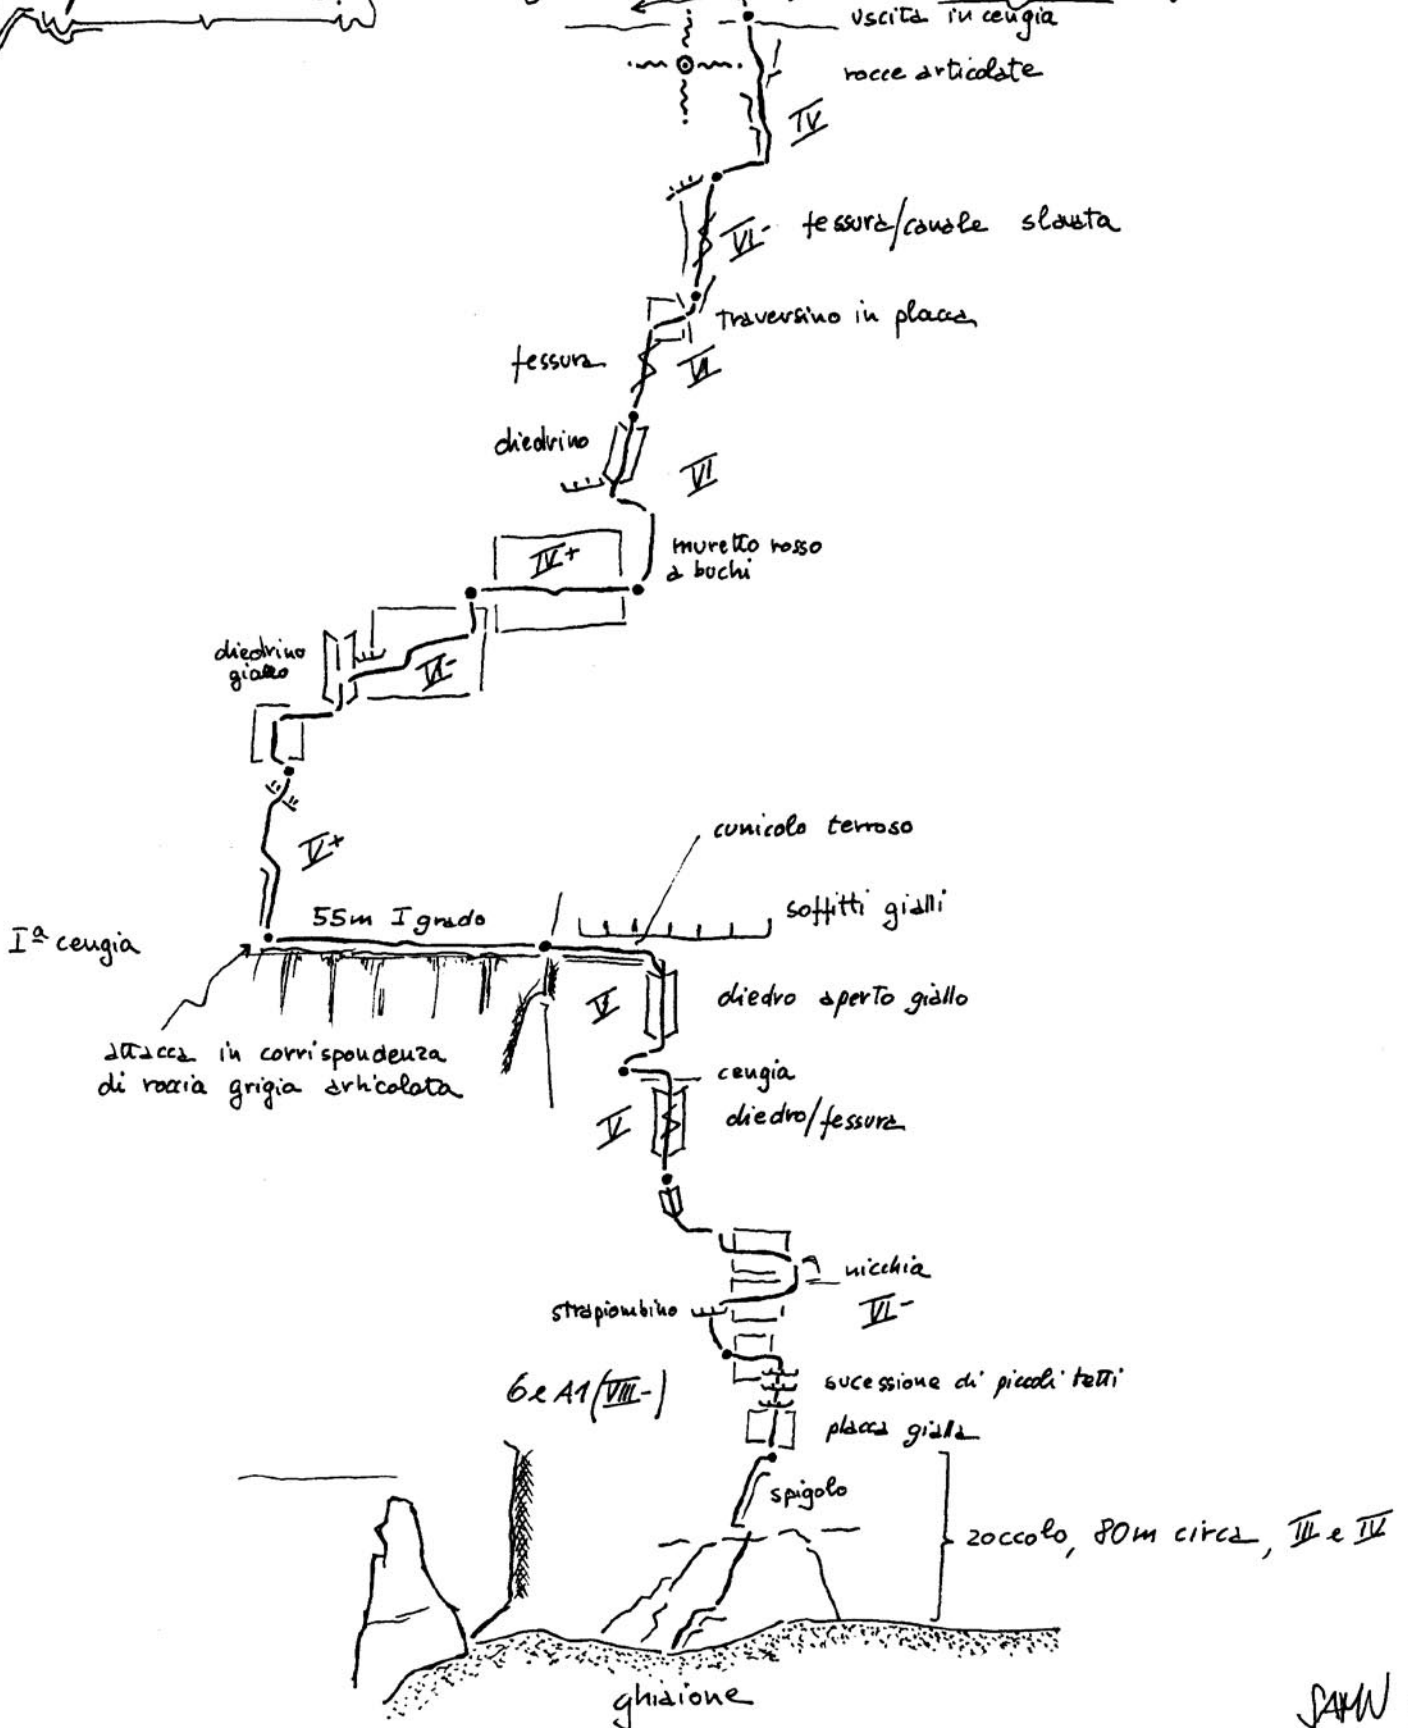 uscita in cengia
rocce articolate
IV
VI- fessura/canale slavata
traversino in placca
fessura VI
diedrino
VI
IV+
muretto rosso
a buchi
diedrino
giallo
VI-
V+
cunicolo terroso
soffitti gialli
55m I grado
Iª cengia
V diedro aperto giallo
attacca in corrispondenza
di roccia grigia articolata
cengia
V diedro/fessura
nicchia
strapiombino VI-
6 e A1 (VIII-) sucessione di piccoli tetti
placca gialla
spigolo
zoccolo, 80m circa, III e IV
ghiaione